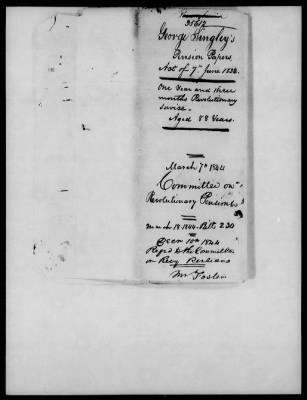 35612
George Tingley's
Pension Papers
Act of 7th June 1832.
One Year and three
months Revolutionary
Service.
Aged 88 Years.
March 7th 1844
Committee on
Revolutionary Pensions
March 18. 1844. Bill, 230
Decr 10th 1844
to the Committee
on Revy Pensions
Mr